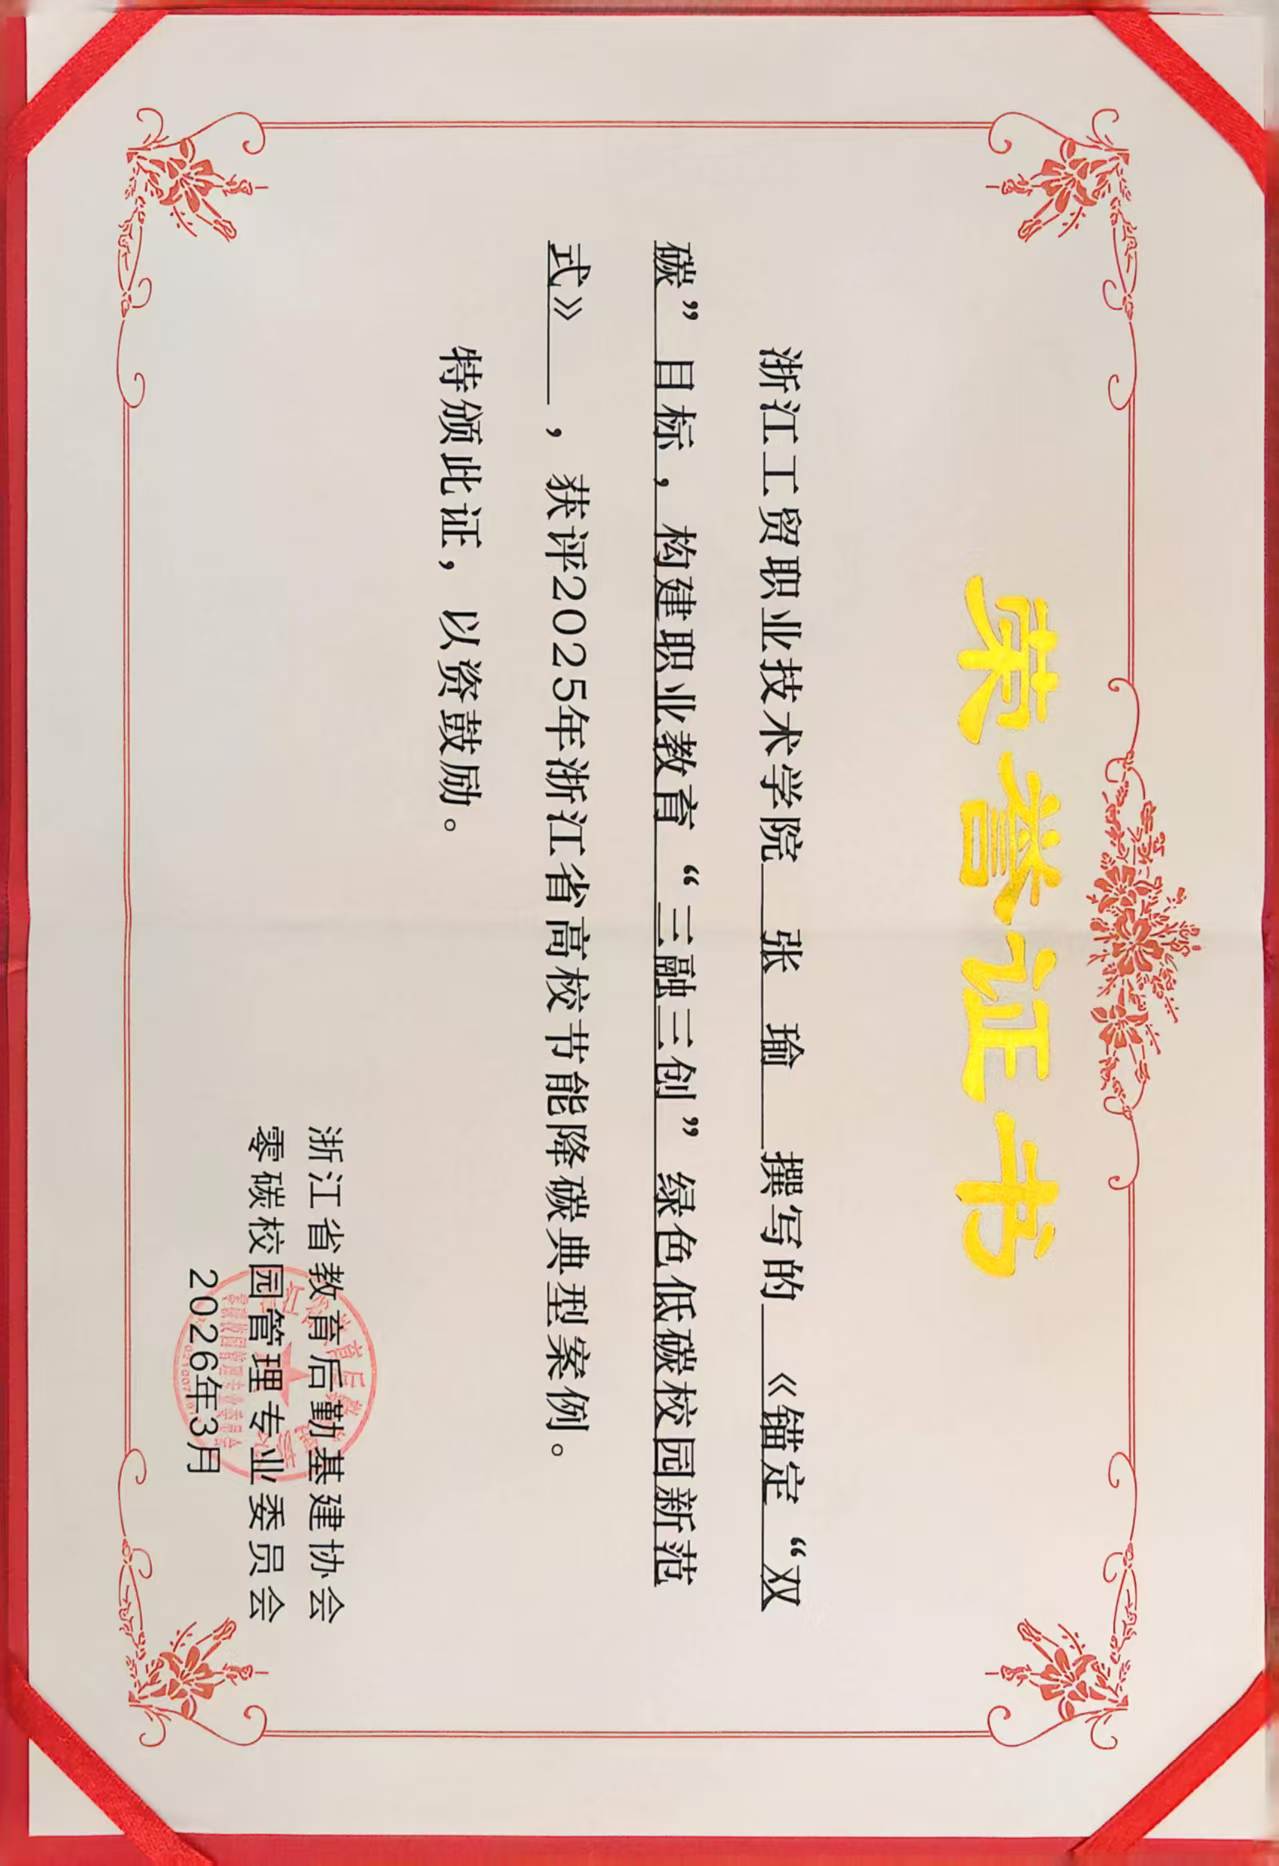 荣誉证书
浙江工贸职业技术学院 张 瑜 撰写的 《锚定“双
碳”目标，构建职业教育“三融三创”绿色低碳校园新范
式》 ，获评2025年浙江省高校节能降碳典型案例。
特颁此证，以资鼓励。
浙江省教育后勤基建协会
零碳校园管理专业委员会
2026年3月